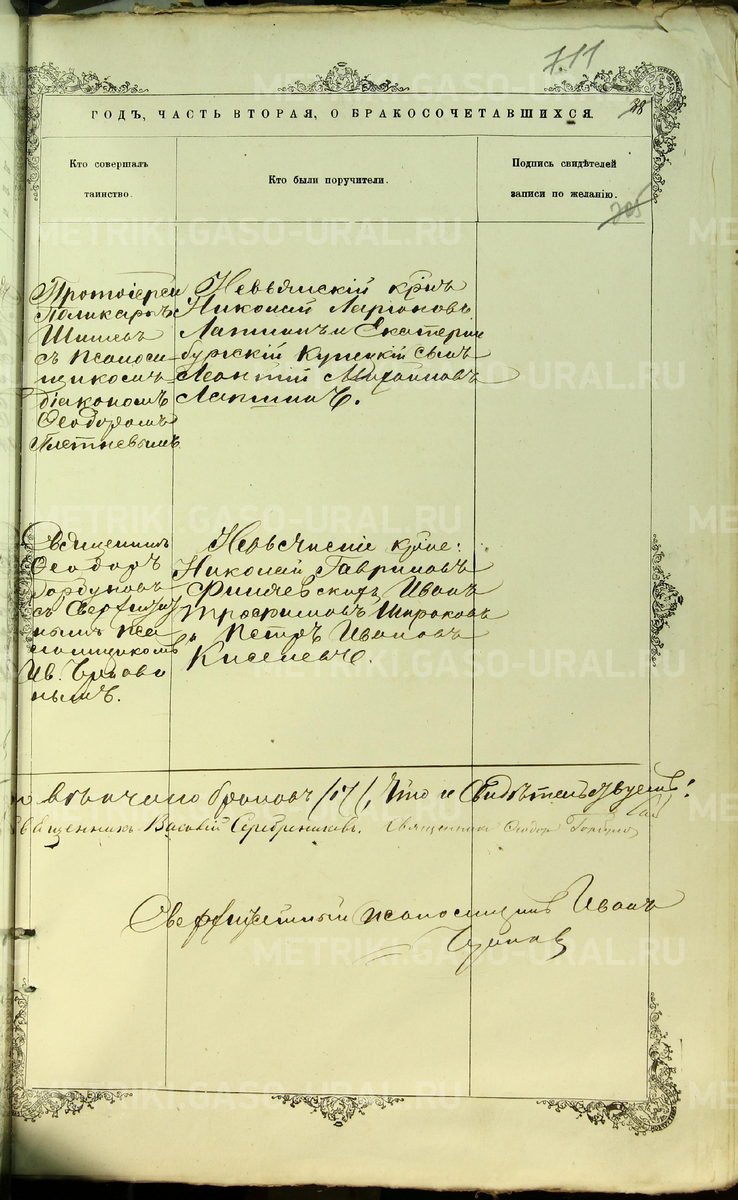 711
ГОДЪ, ЧАСТЬ ВТОРАЯ, О БРАКОСОЧЕТАВШИХСЯ.
Кто совершалъ
таинство.
Кто были поручители.
Подпись свидѣтелей
записи по желанію.
705
Протоіерей
Поликарпъ
Шишевъ
съ псаломщикомъ
діакономъ
Ѳеодоромъ
Плетневымъ
Невьянскій кр
Николай Ларіоновъ
Лапшинъ и Екатерин
бургскій Купецкій сынъ
Леонтій Михайловъ
Лапшинъ.
Священникъ
Ѳеодоръ
Горбуновъ
съ Сверхштат
нымъ пса
ломщикомъ
Ив.
нымъ.
Невьянскіе кр
Николай Гавриловъ
Иванъ
Трофимовъ Широковъ
и Петръ Ивановъ
Киселевъ.
вѣнчано браковъ /17/, Что и Свидѣтельствуемъ:
Священникъ Василій Серебренниковъ. Священникъ Ѳеодор Горбуновъ
Сверхштатный псаломщикъ Иванъ
METRIKI.GASO-URAL.RU